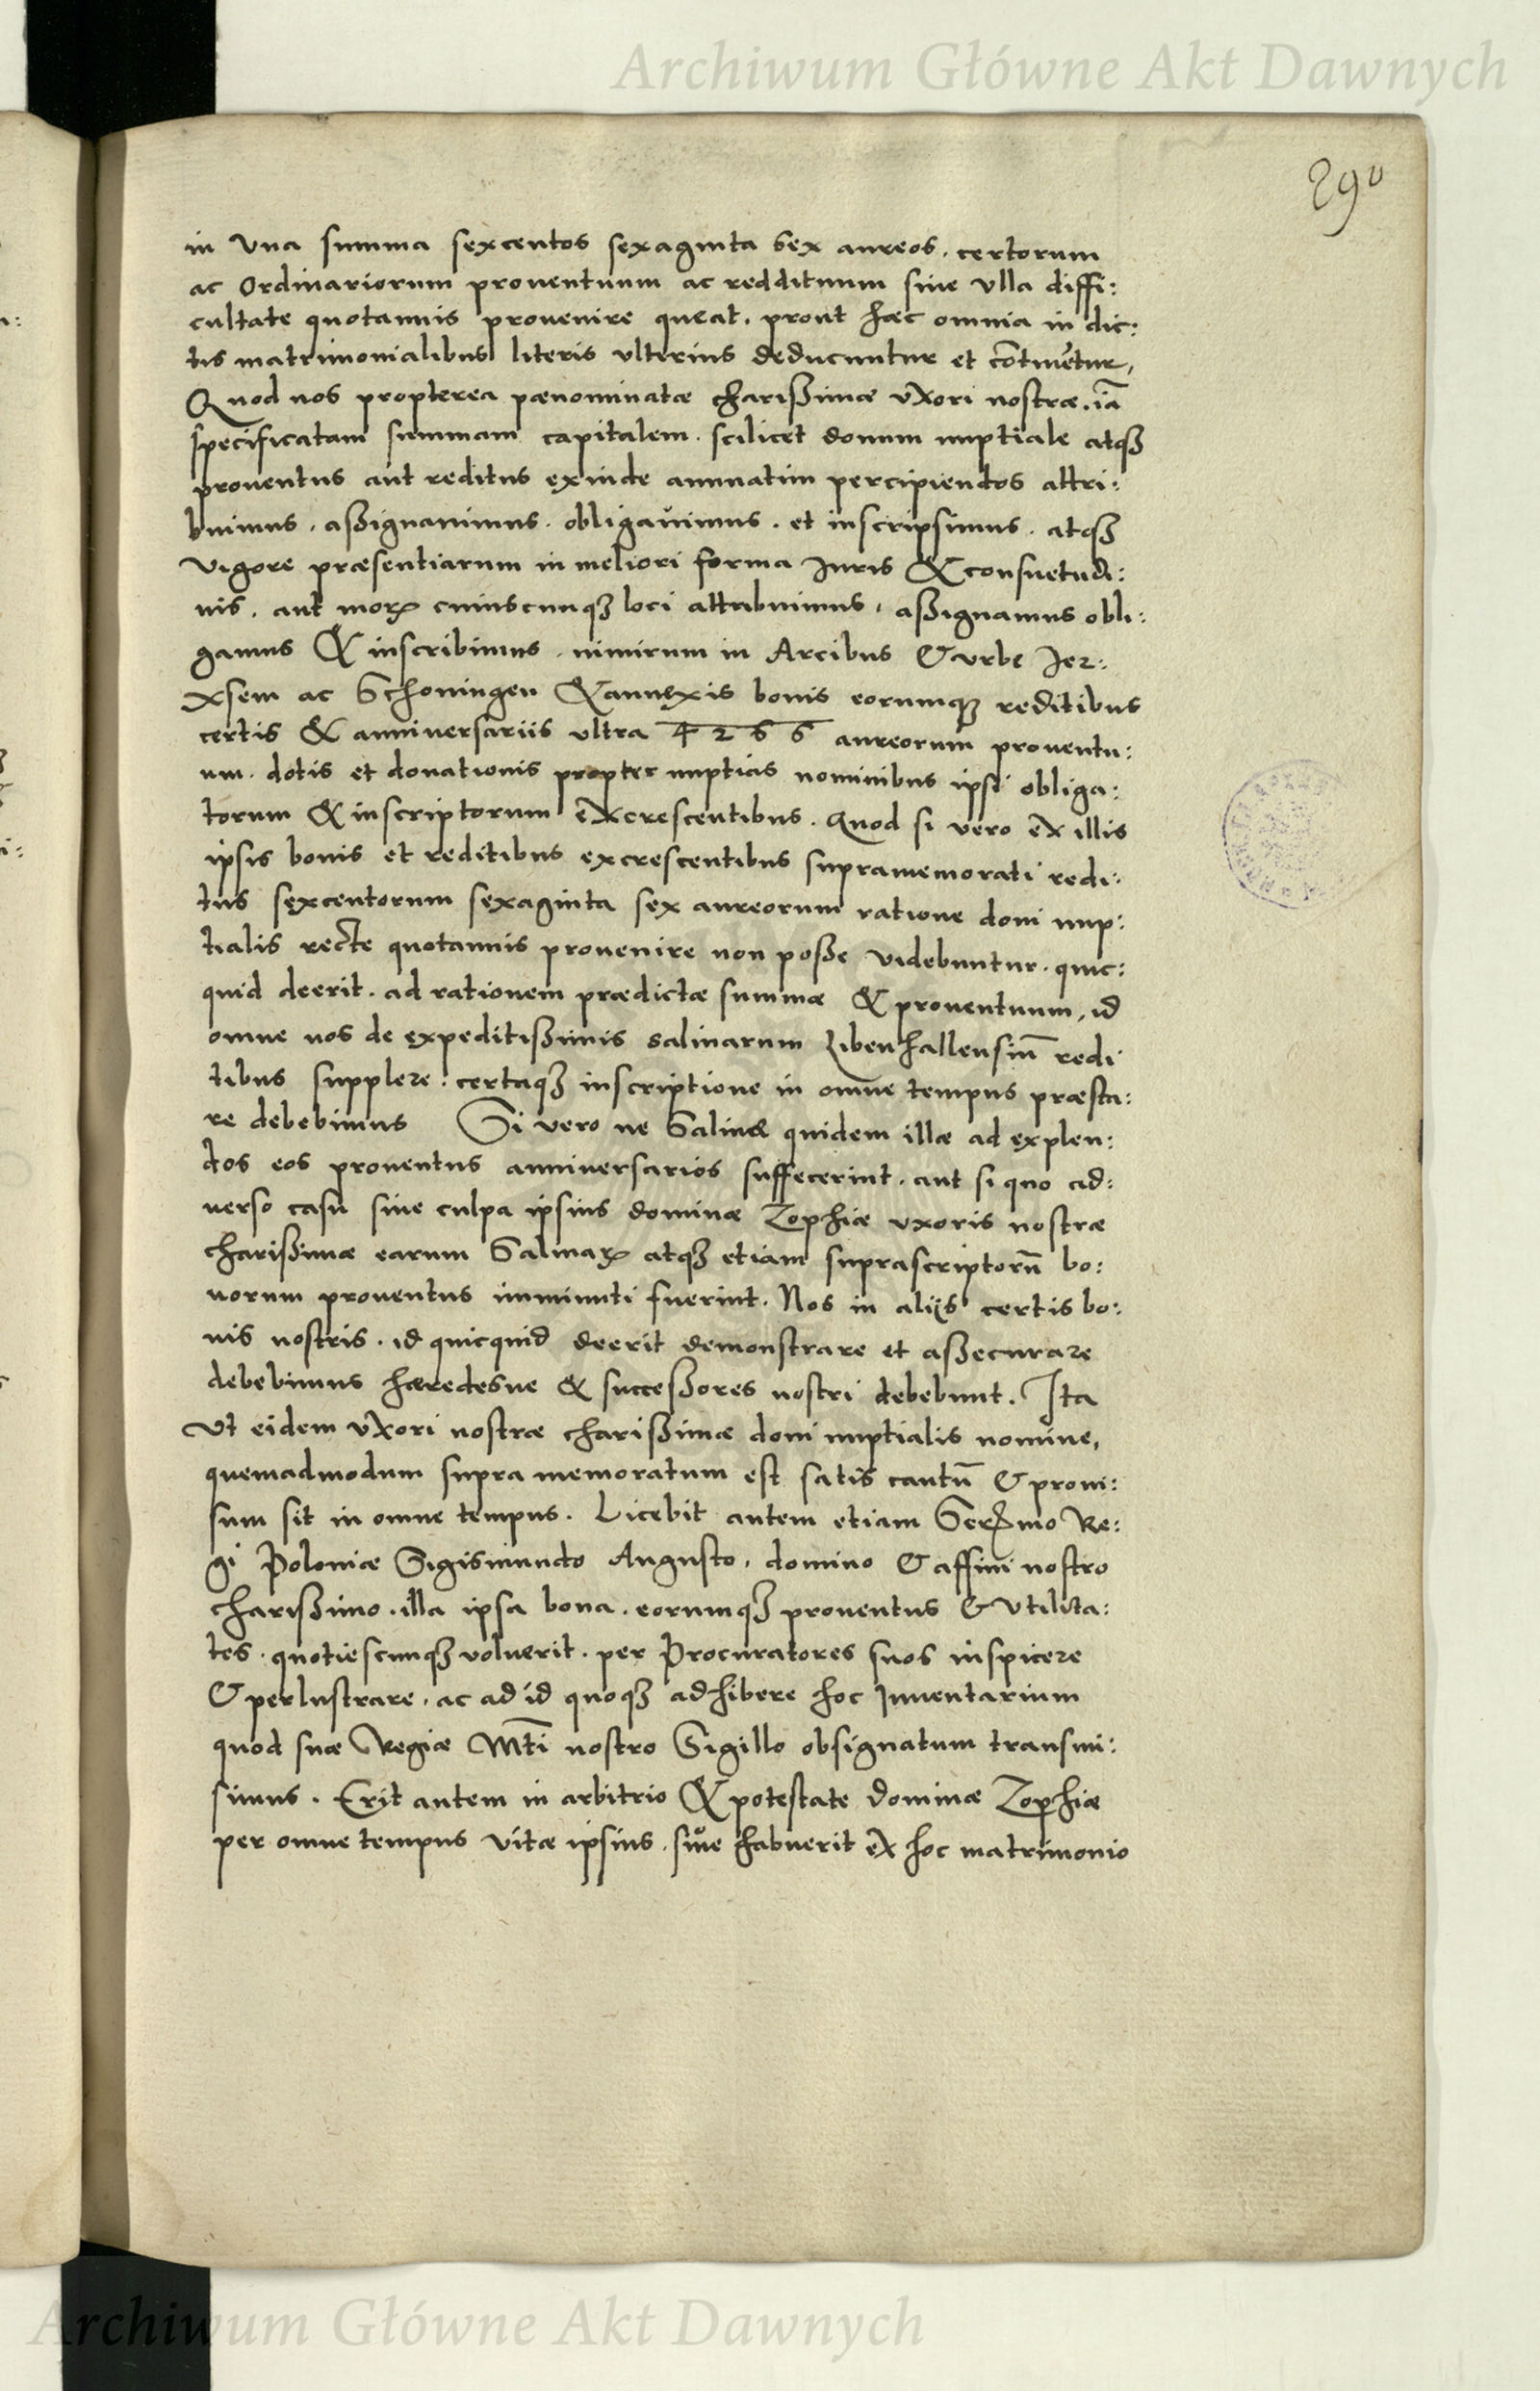 Archiwum Główne Akt Dawnych
290
in Vna summa sexcentos sexaginta sex aureos. certorum
ac Ordinariorum prouentuum ac reddituum siue vlla diffi:
cultate quotannis prouenire queat. prout hæc omnia in dic:
tis matrimonialibus literis vlterius deducuntur et cōtinētur,
Quod nos propterea pænominatæ charißimæ vxori nostræ. iā
specificatam summam capitalem. scilicet donum nuptiale atqꝫ
prouentus aut reditus exinde annuatim percipiendos attri:
buimus. aßignauimus. obligauimus. et inscripsimus. atqꝫ
Vigore præsentiarum in meliori forma Juris & consuetudi:
nis. aut morꝝ cuiuscunqꝫ loci attribuimus, aßignamus obli:
gamus & inscribimus. nimirum in Arcibus & vrbe Jer:
xsem ac Schoningen & annexis bonis eorumqꝫ reditibus
certis & anniuersariis vltra 4266 aureorum prouentu:
um. dotis et donationis propter nuptias nominibus ipsi obliga:
torum & inscriptorum excrescentibus. Quod si vero ex illis
ipsis bonis et reditibus excrescentibus supramemorati redi:
tus sexcentorum sexaginta sex aureorum ratione doni nup:
tialis recte quotannis prouenire non poße videbuntur. quic:
quid deerit. ad rationem prædictæ summæ & prouentuum, id
omne nos de expeditißimis salinarum Libenhallensiū redi
tibus supplere: certaqꝫ inscriptione in omne tempus præsta:
re debebimus Si vero ne Salinæ quidem illæ ad explen:
dos eos prouentus anniuersarios suffecerint. aut si quo ad:
uerso casu sine culpa ipsius dominæ Zophiæ vxoris nostræ
charißimæ earum Salinaꝝ atqꝫ etiam suprascriptorū bo:
norum prouentus imminuti fuerint. Nos in aliis certis bo:
nis nostris. id quicquid deerit demonstrare et aßecurare
debebimus hæredesue & succeßores nostri debebunt. Ita
Vt eidem vxori nostræ charißimæ doni nuptialis nomine,
quemadmodum supra memoratum est satis cautū & proui:
sum sit in omne tempus. Licebit autem etiam Serꝫmo Re:
gi Poloniæ Sigismundo Augusto, domino & affini nostro
charißimo. illa ipsa bona. eorumqꝫ prouentus & Vtilita:
tes. quotiescunqꝫ voluerit. per Procuratores suos inspicere
& perlustrare, ac ad id quoqꝫ adhibere hoc Inuentarium
quod suæ Regiæ Mti nostro Sigillo obsignatum transmi:
simus. Erit autem in arbitrio & potestate dominæ Zophiæ
per omne tempus vitæ ipsius. siue habuerit ex hoc matrimonio
Archiwum Główne Akt Dawnych